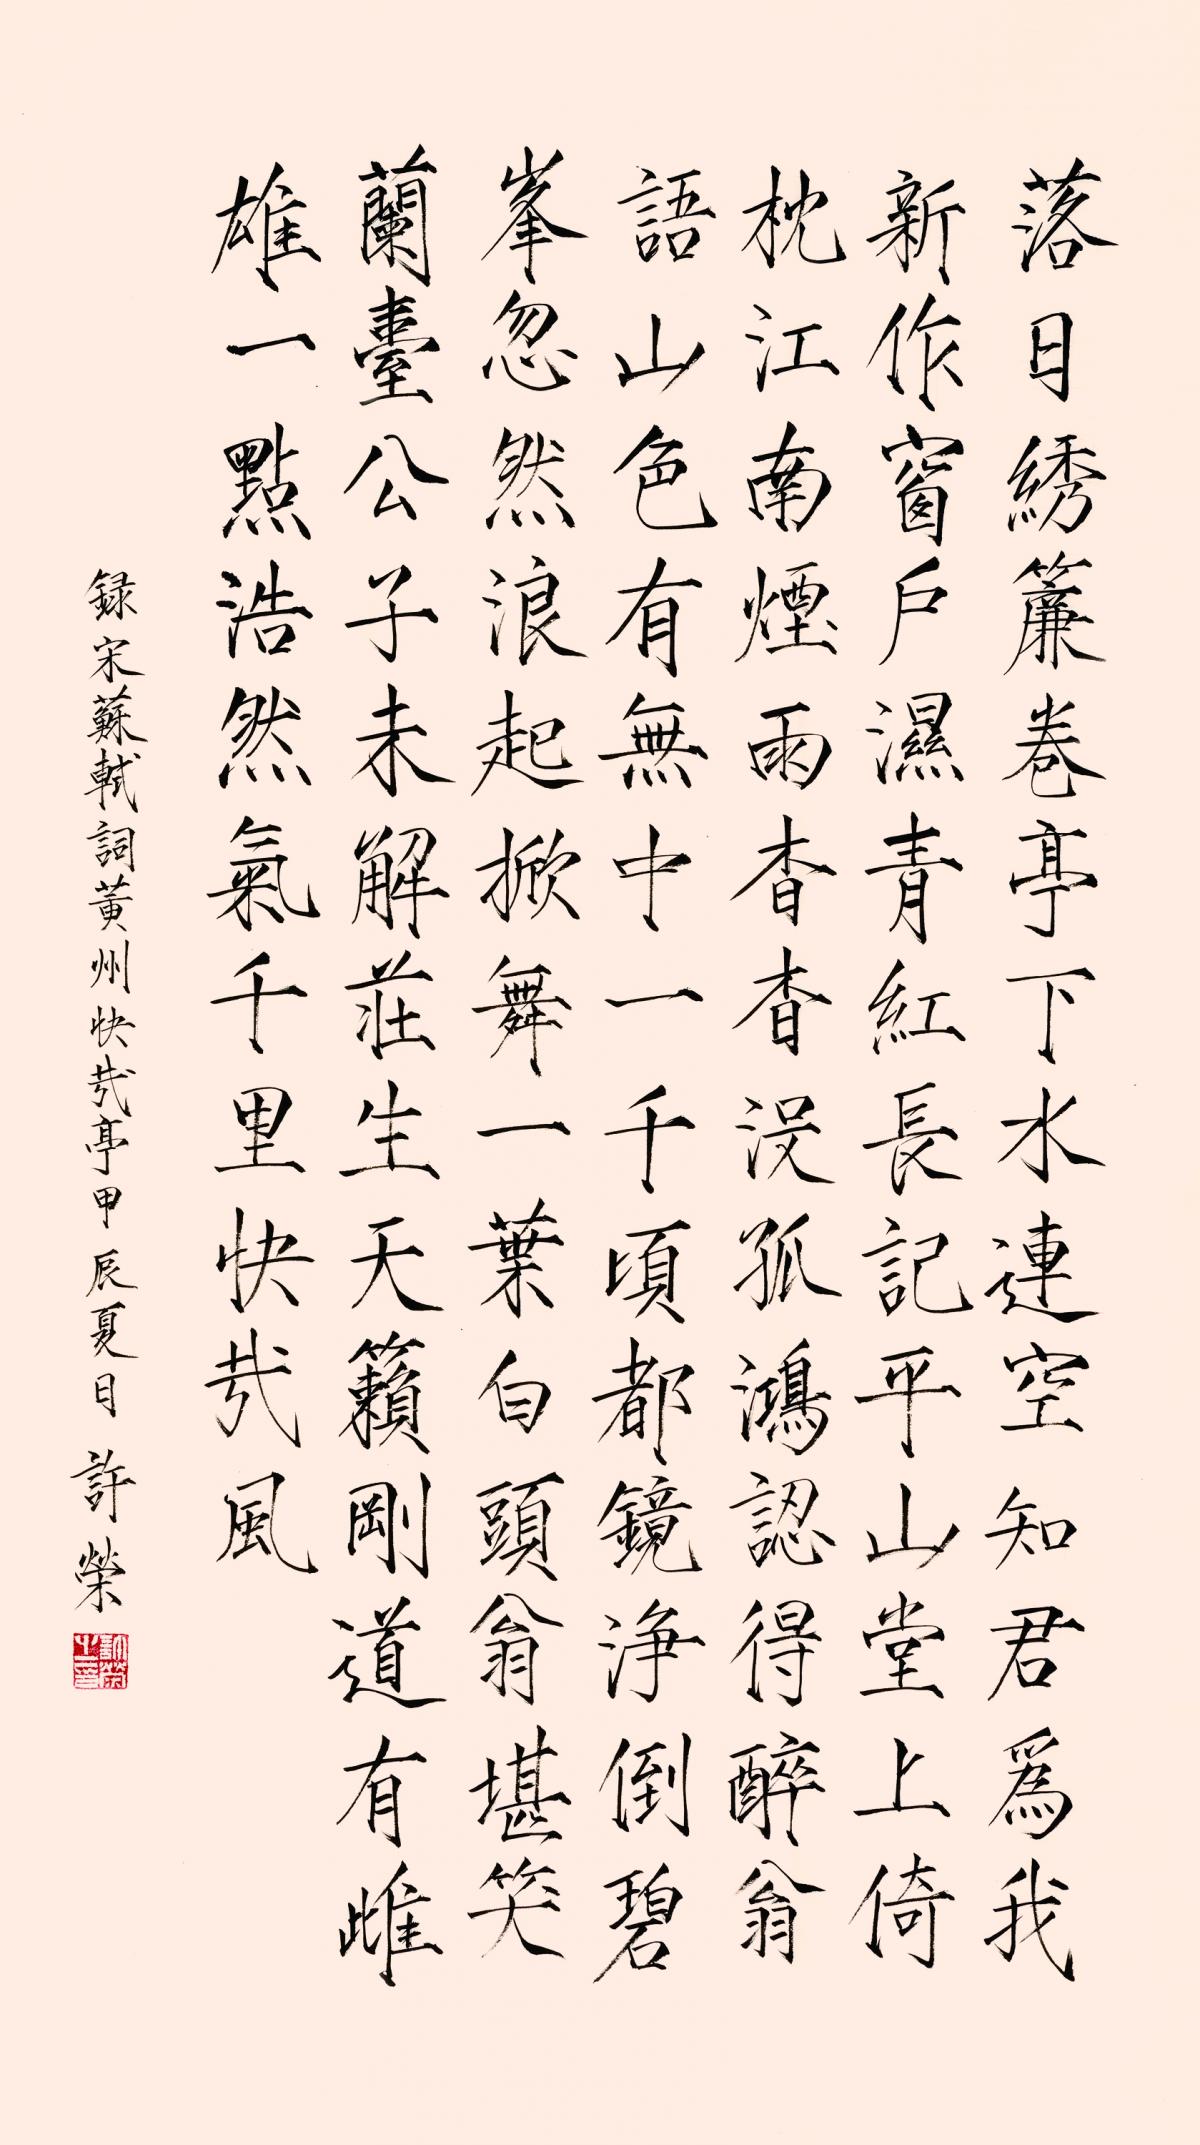 落日綉簾卷亭下水連空知君爲我
新作窗戶濕青紅長記平山堂上倚
枕江南煙雨杳杳没孤鴻認得醉翁
語山色有無中一千頃都鏡浄倒碧
峯忽然浪起掀舞一葉白頭翁堪笑
蘭臺公子未解莊生天籟剛道有雌
雄一點浩然氣千里快哉風
録宋蘇軾詞黃州快哉亭甲辰夏日 許榮
許榮之印